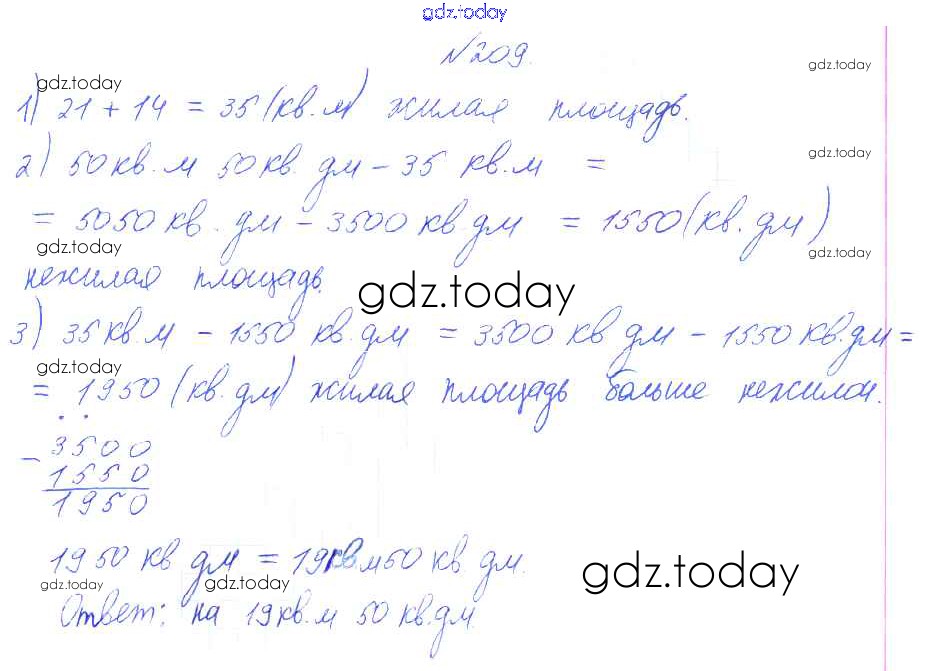 gdz.today
№209.
gdz.today
gdz.today
1) 21 + 14 = 35 (кв.м) жилая площадь.
2) 50 кв. м 50 кв. дм - 35 кв.м =
gdz.today
= 5050 кв. дм - 3500 кв дм = 1550 (кв. дм)
gdz.today
gdz.today
нежилая площадь.
gdz.today
3) 35 кв.м - 1550 кв. дм = 3500 кв дм - 1550 кв.дм =
gdz.today
= 1950 (кв. дм) жилая площадь больше нежилой.
- 3500
1550
1950
1950 кв дм = 19 кв м 50 кв. дм.
gdz.today
gdz.today
gdz.today
Ответ: на 19 кв.м 50 кв.дм.